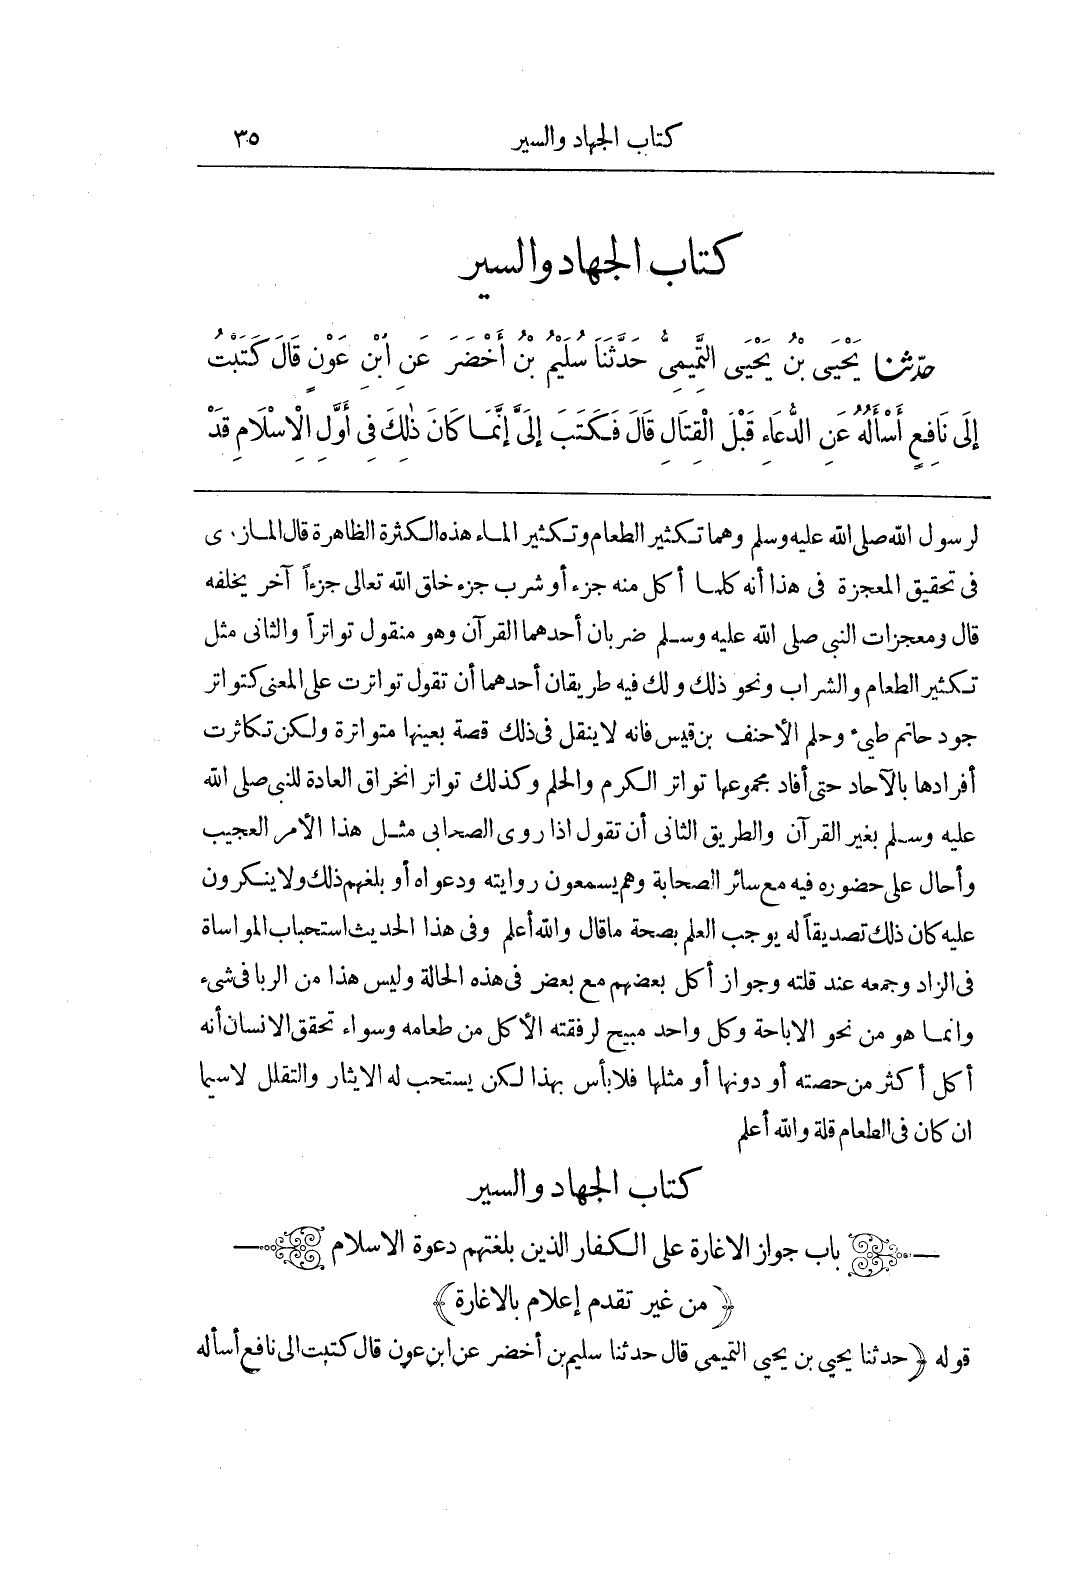 كتاب الجهاد والسير ٣٥
كتاب الجهاد والسير
حدّثنا يَحْيَى بْنُ يَحْيَى التَّمِيمِىُّ حَدَّثَنَا سُلَيْمُ بْنُ أَخْضَرَ عَنِ ابْنِ عَوْنٍ قَالَ كَتَبْتُ
إِلَى نَافِعٍ أَسْأَلُهُ عَنِ الدُّعَاءِ قَبْلَ الْقِتَالِ قَالَ فَكَتَبَ إِلَىَّ إِنَّمَا كَانَ ذٰلِكَ فِى أَوَّلِ الْإِسْلَامِ قَدْ
لرسول الله صلى الله عليه وسلم وهما تكثير الطعام وتكثير الماء هذه الكثرة الظاهرة قال المازرى
فى تحقيق المعجزة فى هذا أنه كلما أكل منه جزء أو شرب جزء خلق الله تعالى جزءاً آخر يخلفه
قال ومعجزات النبى صلى الله عليه وسلم ضربان أحدهما القرآن وهو منقول تواتراً والثانى مثل
تكثير الطعام والشراب ونحو ذلك ولك فيه طريقان أحدهما أن تقول تواترت على المعنى كتواتر
جود حاتم طيء وحلم الأحنف بن قيس فانه لا ينقل فى ذلك قصة بعينها متواترة ولكن تكاثرت
أفرادها بالآحاد حتى أفاد مجموعها تواتر الكرم والحلم وكذلك تواتر انخراق العادة للنبى صلى الله
عليه وسلم بغير القرآن والطريق الثانى أن تقول اذا روى الصحابى مثل هذا الأمر العجيب
وأحال على حضوره فيه مع سائر الصحابة وهم يسمعون روايته ودعواه أو بلغهم ذلك ولا ينكرون
عليه كان ذلك تصديقاً له يوجب العلم بصحة ماقال والله أعلم وفى هذا الحديث استحباب المواساة
فى الزاد وجمعه عند قلته وجواز أكل بعضهم مع بعض فى هذه الحالة وليس هذا من الربا فى شىء
وانما هو من نحو الاباحة وكل واحد مبيح لرفقته الأكل من طعامه وسواء تحقق الانسان أنه
أكل أكثر من حصته أو دونها أو مثلها فلا بأس بهذا لكن يستحب له الايثار والتقلل لاسيما
ان كان فى الطعام قلة والله أعلم
كتاب الجهاد والسير
باب جواز الاغارة على الكفار الذين بلغتهم دعوة الاسلام
﴿ من غير تقدم إعلام بالاغارة ﴾
قوله ﴿ حدثنا يحيى بن يحيى التميمى قال حدثنا سليم بن أخضر عن ابن عون قال كتبت الى نافع أسأله